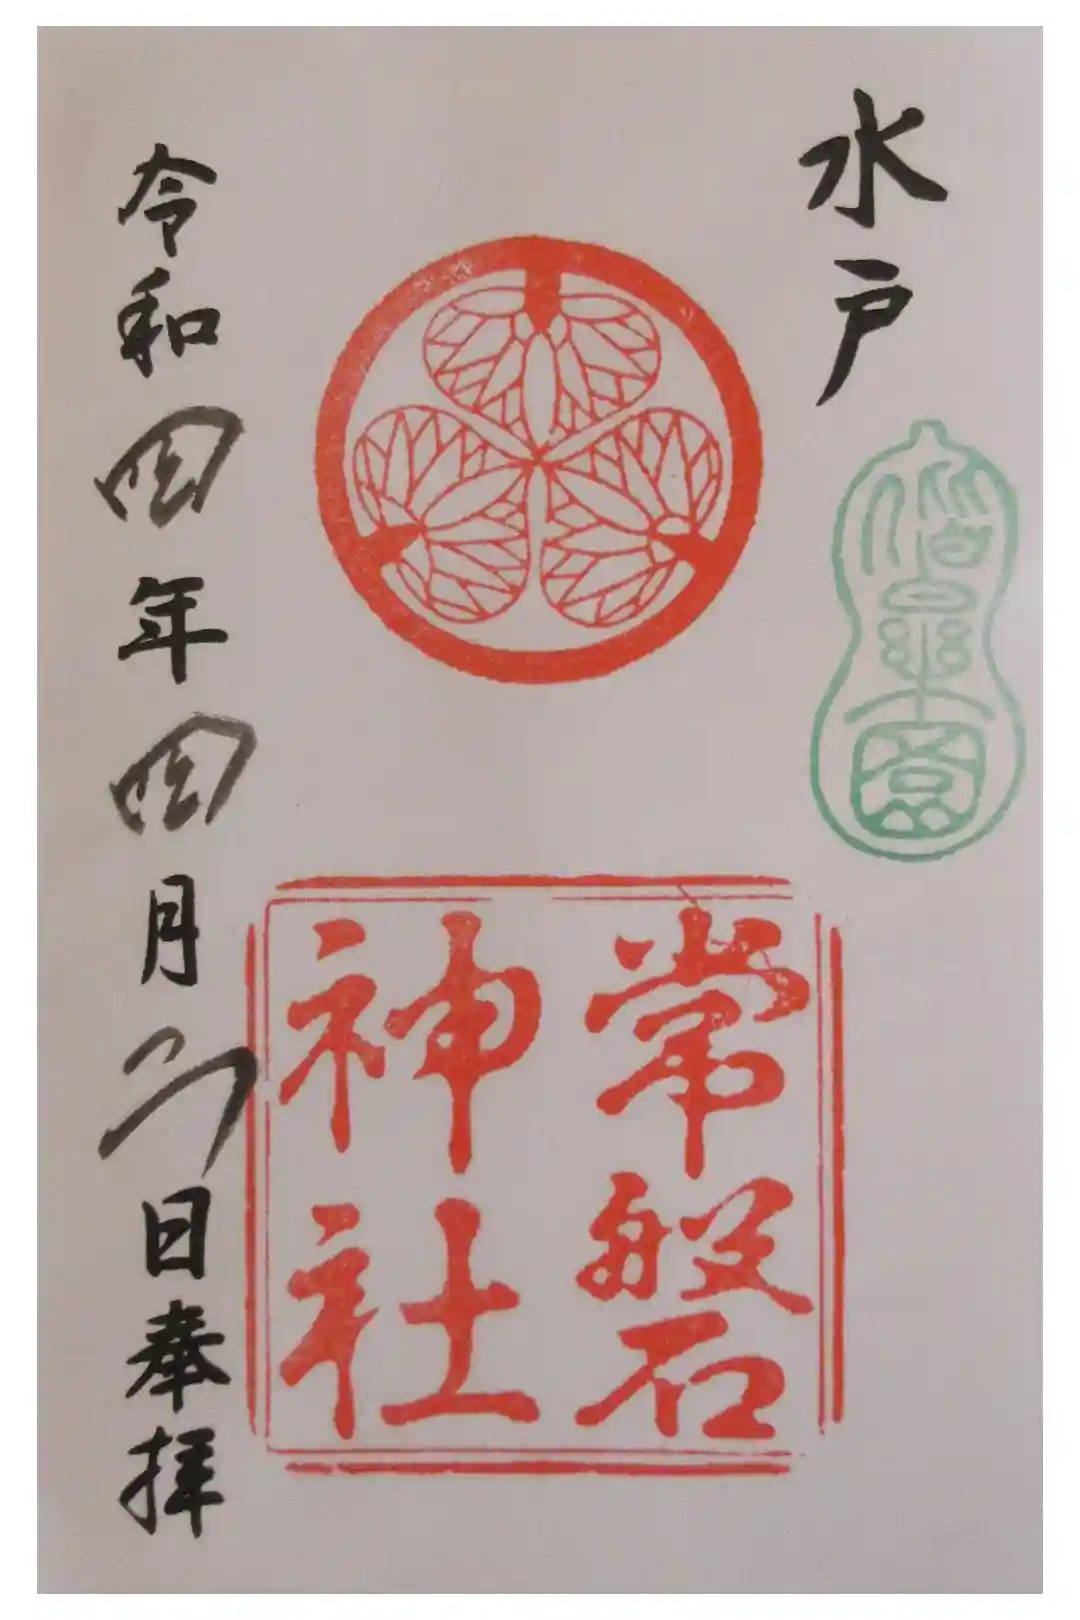 水戸
偕樂園
常磐
神社
令和四年四月 日奉拝